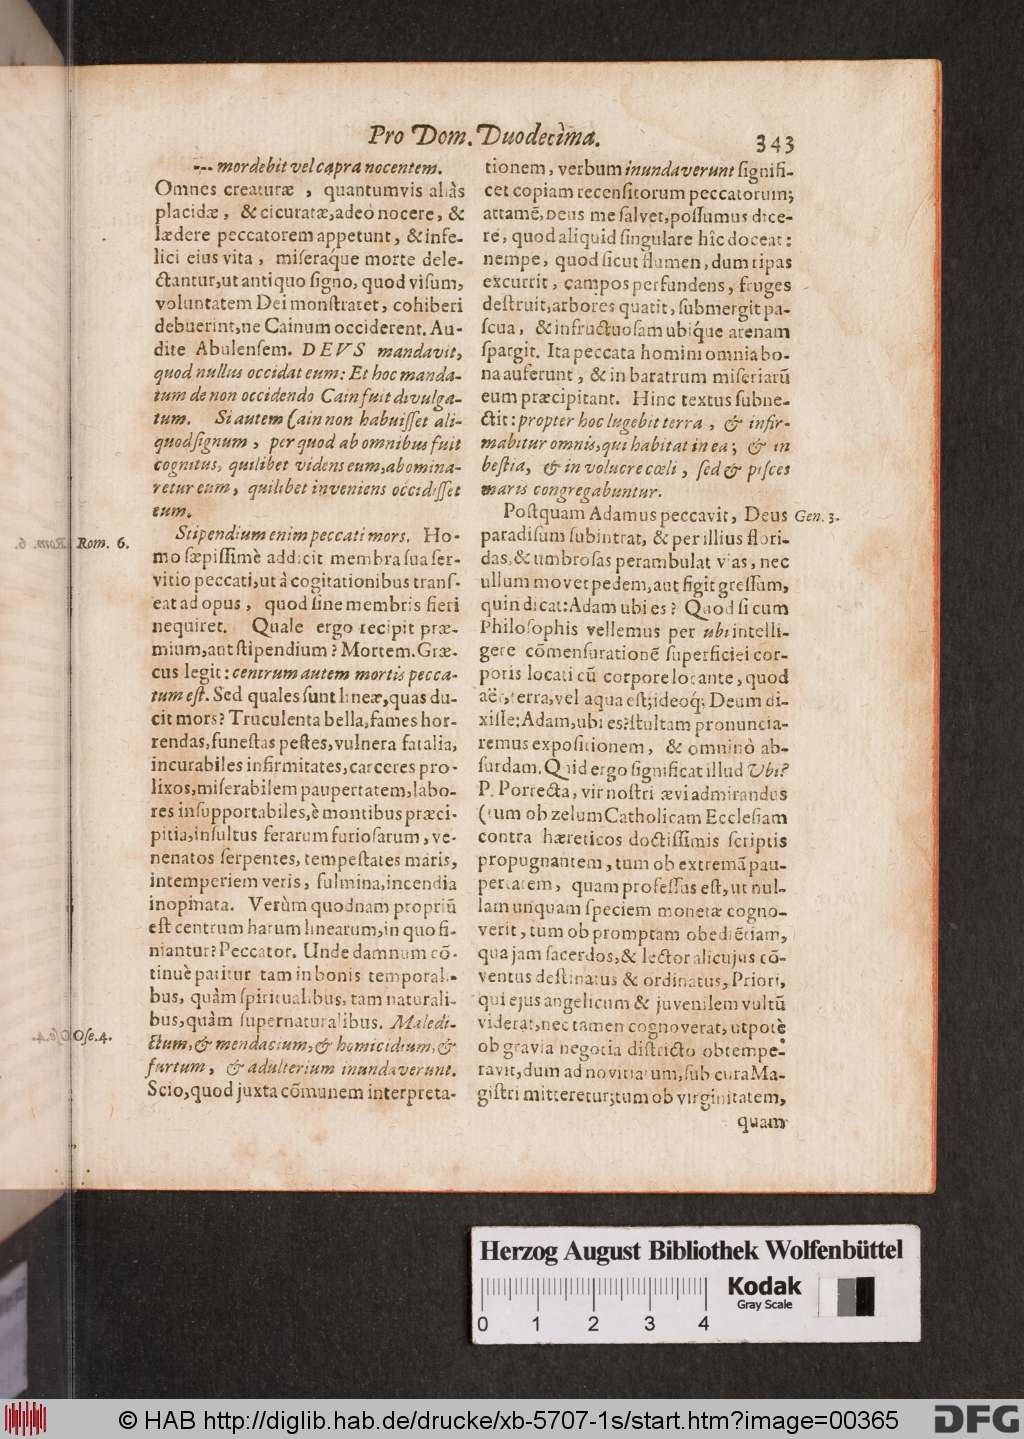 Pro Dom. Duodecima.
343
--- mordebit vel capra nocentem.
Omnes creaturæ , quantumvis aliàs
placidæ, & cicuratæ, adeò nocere, &
lædere peccatorem appetunt, & infe-
lici eius vita, miseraque morte dele-
ctantur, ut antiquo signo, quod visum,
voluntatem Dei monstraret, cohiberi
debuerint, ne Cainum occiderent. Au-
dite Abulensem. DEVS mandavit,
quod nullus occidat eum: Et hoc manda-
tum de non occidendo Cain fuit divulga-
tum. Si autem Cain non habuisset ali-
quod signum , per quod ab omnibus fuit
cognitus, quilibet videns eum, abomina-
retur eum, quilibet inveniens occidisset
eum.
Rom. 6.
Stipendium enim peccati mors. Ho-
mo sæpissimè addicit membra sua ser-
vitio peccati, ut à cogitationibus trans-
eat ad opus , quod sine membris fieri
nequiret. Quale ergo recipit præ-
mium, aut stipendium? Mortem. Græ-
cus legit: centrum autem mortis pecca-
tum est. Sed quales sunt lineæ, quas du-
cit mors? Truculenta bella, fames hor-
rendas, funestas pestes, vulnera fatalia,
incurabiles infirmitates, carceres pro-
lixos, miserabilem paupertatem, labo-
res insupportabiles, è montibus præci-
pitia, insultus ferarum furiosarum, ve-
nenatos serpentes, tempestates maris,
intemperiem veris, fulmina, incendia
inopinata. Verùm quodnam propriū
est centrum harum linearum, in quo fi-
niantur? Peccator. Unde damnum cō-
tinuè patitur tam in bonis temporali-
bus, quàm spiritualibus, tam naturali-
bus, quàm supernaturalibus. Maledi-
Ose. 4.
ctum, & mendacium, & homicidium, &
furtum, & adulterium inundaverunt.
Scio, quod juxta cōmunem interpreta-
tionem, verbum inundaverunt signifi-
cet copiam recensitorum peccatorum;
attamē, Deus me salvet, possumus dice-
re, quod aliquid singulare hîc doceat:
nempe, quod sicut flumen, dum ripas
excurrit, campos perfundens, fruges
destruit, arbores quatit, submergit pa-
scua, & infructuosam ubique arenam
spargit. Ita peccata homini omnia bo-
na auferunt, & in baratrum miseriarū
eum præcipitant. Hinc textus subne-
ctit: propter hoc lugebit terra, & infir-
mabitur omnis, qui habitat in ea; & in
bestia, & in volucre cœli, sed & pisces
maris congregabuntur.
Postquam Adamus peccavit, Deus
Gen. 3.
paradisum subintrat, & per illius flori-
das, & umbrosas perambulat vias, nec
ullum movet pedem, aut figit gressum,
quin dicat: Adam ubi es? Quod si cum
Philosophis vellemus per ubi intelli-
gere cōmensurationē superficiei cor-
poris locati cū corpore locante, quod
aër, terra, vel aqua est; ideoq́; Deum di-
xisse: Adam, ubi es? stultam pronuncia-
remus expositionem, & omninò ab-
surdam. Quid ergo significat illud Ubi?
P. Porrecta, vir nostri ævi admirandus
(tum ob zelum Catholicam Ecclesiam
contra hæreticos doctissimis scriptis
propugnantem, tum ob extremā pau-
pertatem, quam professus est, ut nul-
lam unquam speciem monetæ cogno-
verit, tum ob promptam obediētiam,
qua jam sacerdos, & lector alicujus cō-
ventus destinatus & ordinatus, Priori,
qui ejus angelicum & juvenilem vultū
viderat, nec tamen cognoverat, utpotè
ob gravia negotia districto obtempe-
ravit, dum ad novitiatum, sub cura Ma-
gistri mitteretur; tum ob virginitatem,
quam
Herzog August Bibliothek Wolfenbüttel
Kodak
Gray Scale
0 1 2 3 4
© HAB http://diglib.hab.de/drucke/xb-5707-1s/start.htm?image=00365
DFG